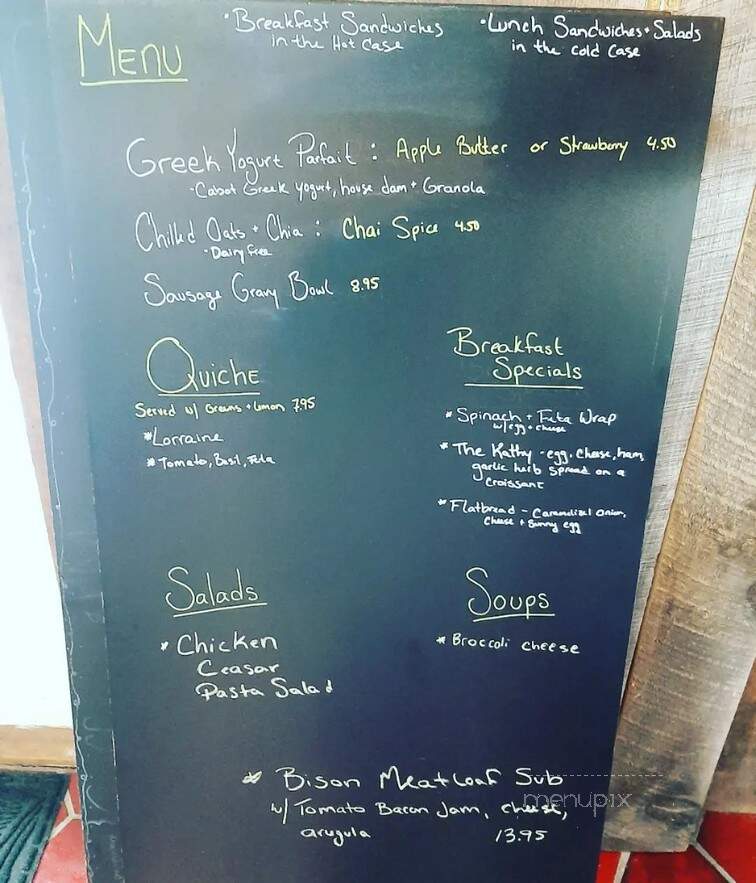 MENU
• Breakfast Sandwiches
in the Hot Case
• Lunch Sandwiches + Salads
in the cold case
Greek Yogurt Parfait : Apple Butter or Strawberry 4.50
• Cabot Greek yogurt, house jam + Granola
Chilled Oats + Chia : Chai Spice 4.50
• Dairy free
Sausage Gravy Bowl 8.95
QUICHE
Served w/ Greens + Lemon 7.95
* Lorraine
* Tomato, Basil, Feta
Breakfast
Specials
* Spinach + Feta Wrap
w/ egg + cheese
* The Kathy - egg, cheese, ham,
garlic herb spread on a
croissant
* Flatbread - Caramelized onion,
cheese + Sunny egg
Salads
* Chicken
Ceasar
Pasta Salad
Soups
* Broccoli cheese
* Bison Meatloaf Sub
w/ Tomato Bacon Jam, cheese,
arugula 13.95
menupix